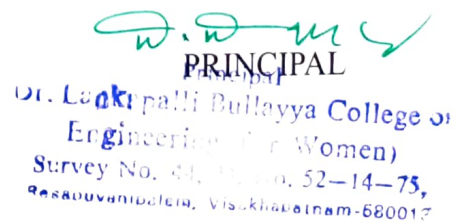 PRINCIPAL
Principal
Dr. Lankapalli Bullayya College of
Engineering (for Women)
Survey No. 44, No. 52-14-75,
Visakhapatnam-530013